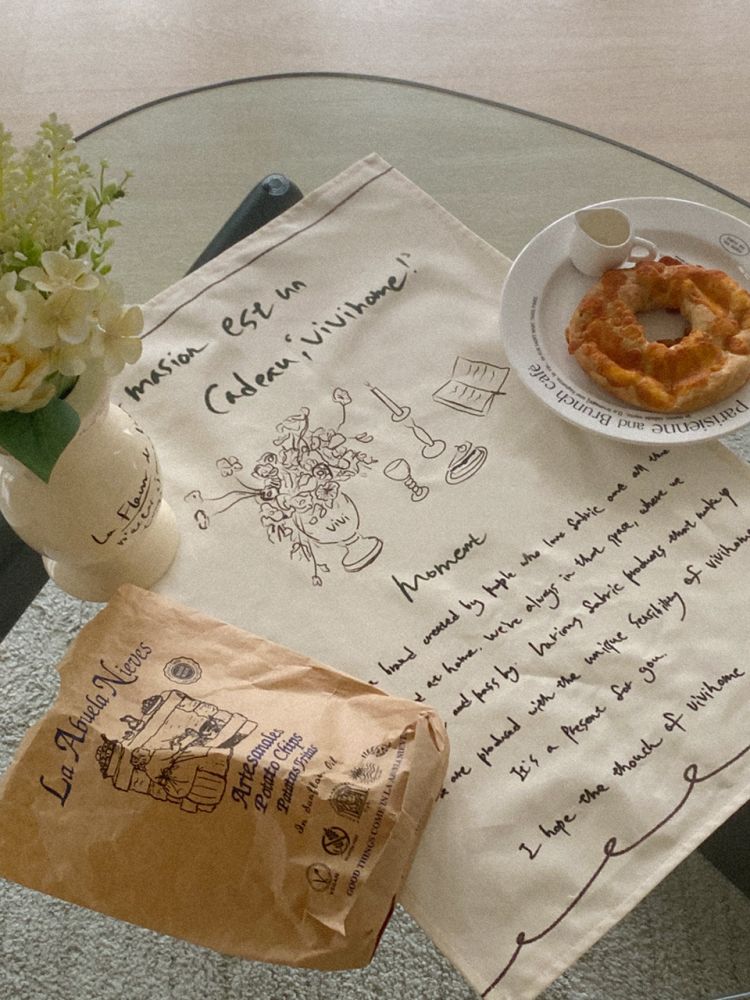 masion est un
Cadeau; vivihome!"
vivi
Moment
brand created by people who love fabric and all the
at home. we're always in that space, where we
and pass by. Various fabric products that make up
are produced with the unique sensibility of vivihome
It's a present for you.
I hope the thouch of vivihome
La Fleur
Parisienne and Brunch café
La Abuela Nieves
Artesanales
Potato Chips
Patatas Fritas
In sunflower Oil
VEGAN
GOOD THINGS COME IN